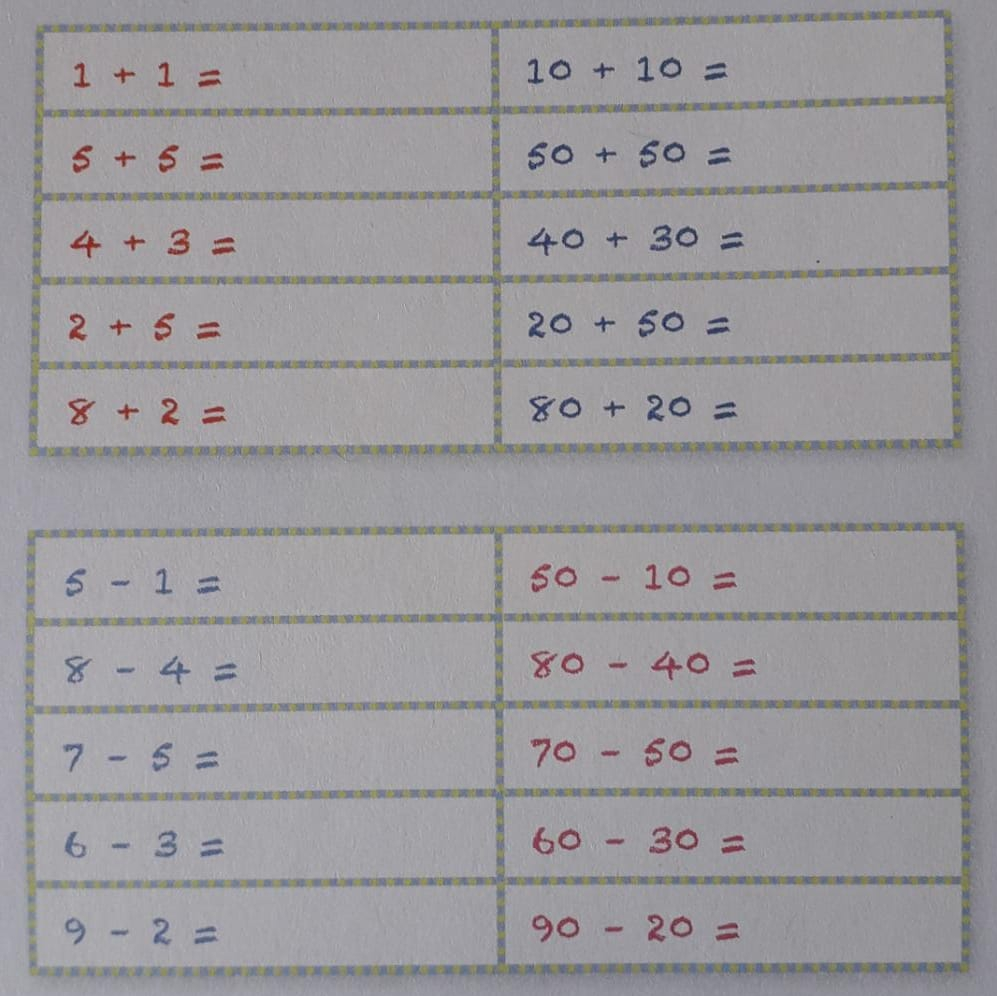 1 + 1 = 10 + 10 =
5 + 5 = 50 + 50 =
4 + 3 = 40 + 30 =
2 + 5 = 20 + 50 =
8 + 2 = 80 + 20 =
5 - 1 = 50 - 10 =
8 - 4 = 80 - 40 =
7 - 5 = 70 - 50 =
6 - 3 = 60 - 30 =
9 - 2 = 90 - 20 =